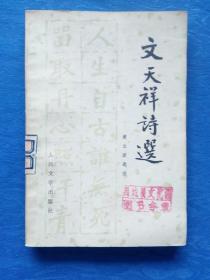 文天祥詩選
黄兰波选注
人生自古誰無死
留取丹心照汗青
人民文学出版社